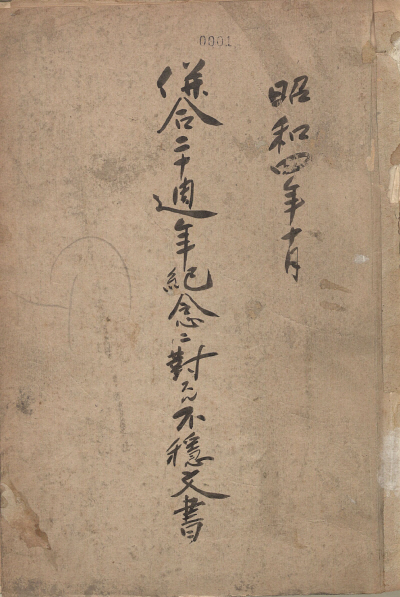 0001
昭和四年十月
併合二十週年紀念ニ對スル不穩文書